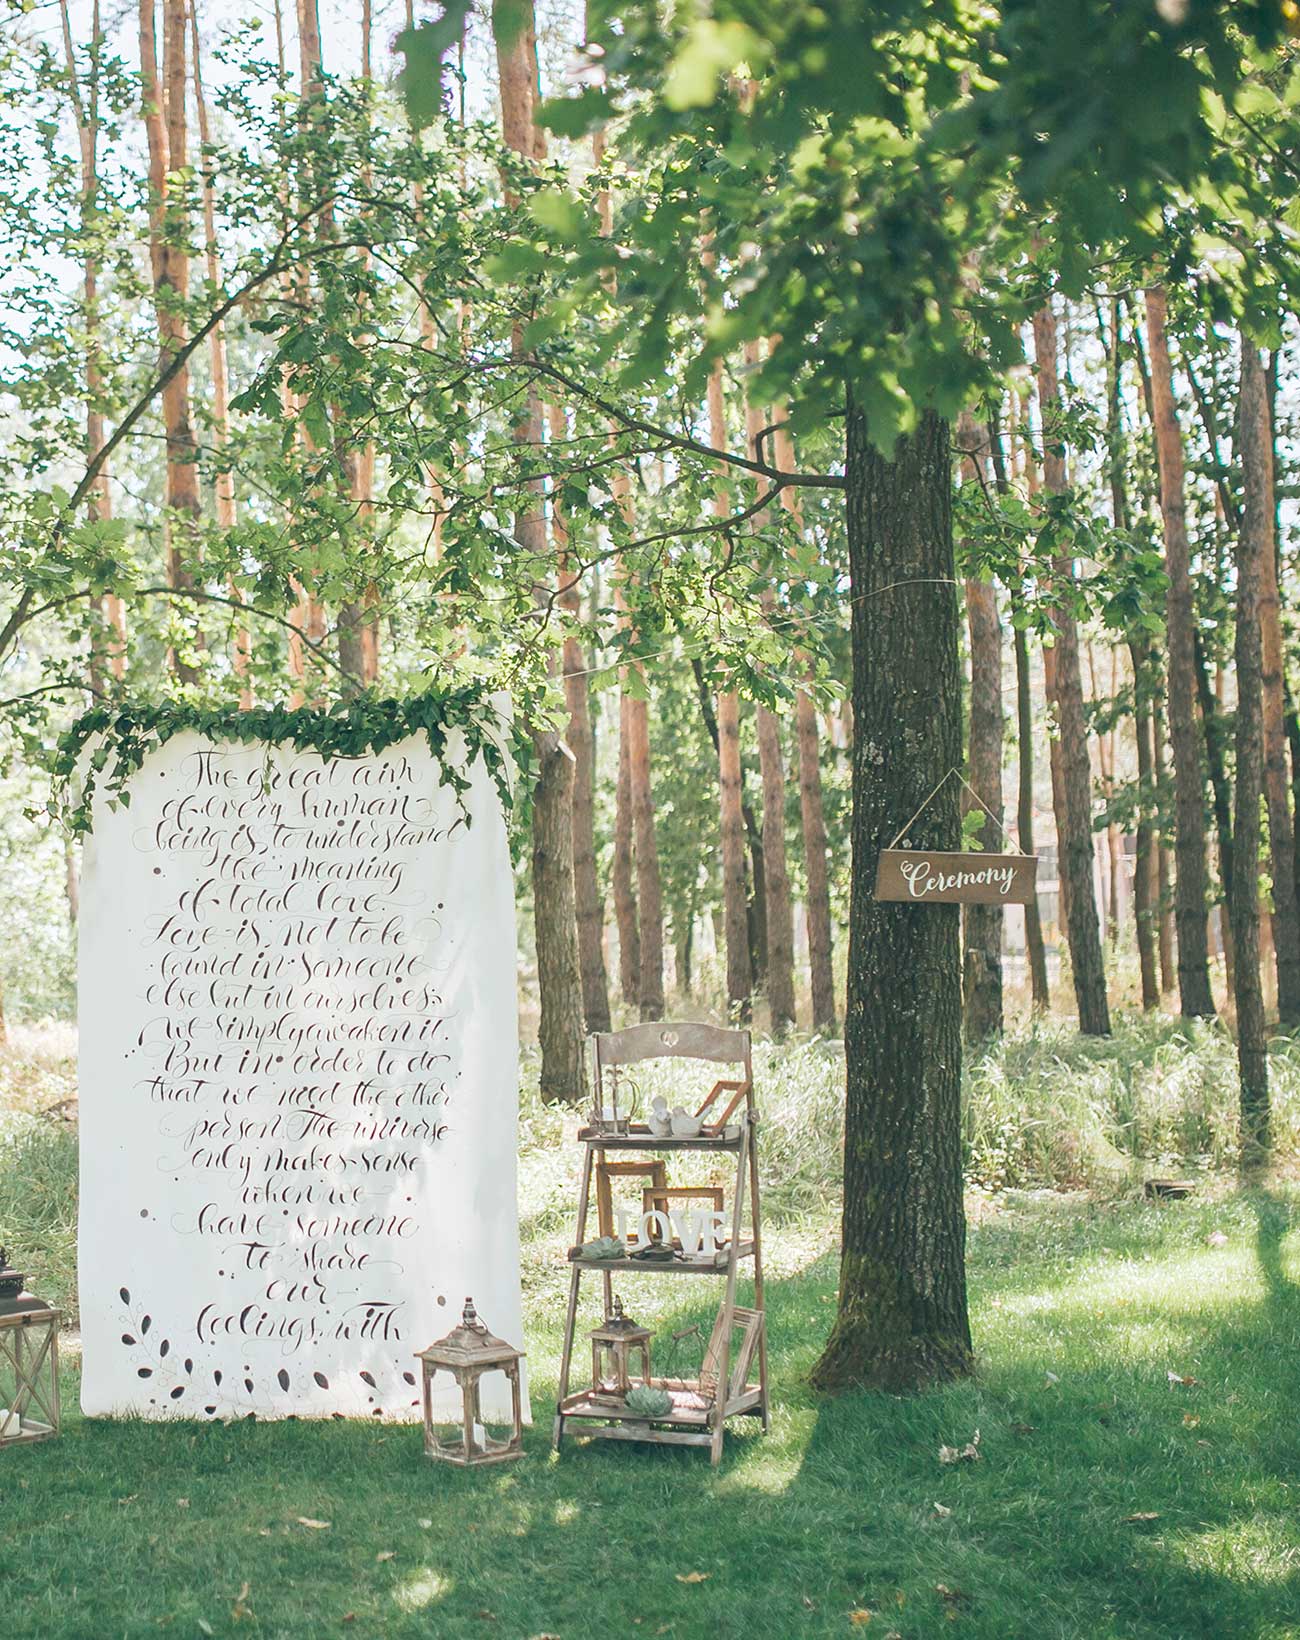 The great aim
of every human
being is, to understand
the meaning
of total love.
Love is, not to be
found in someone
else but in ourselves;
we simply awaken it.
But in order to do
that we need the other
person. The universe
only makes sense
when we
have someone
to share
our
feelings with
Ceremony
LOVE